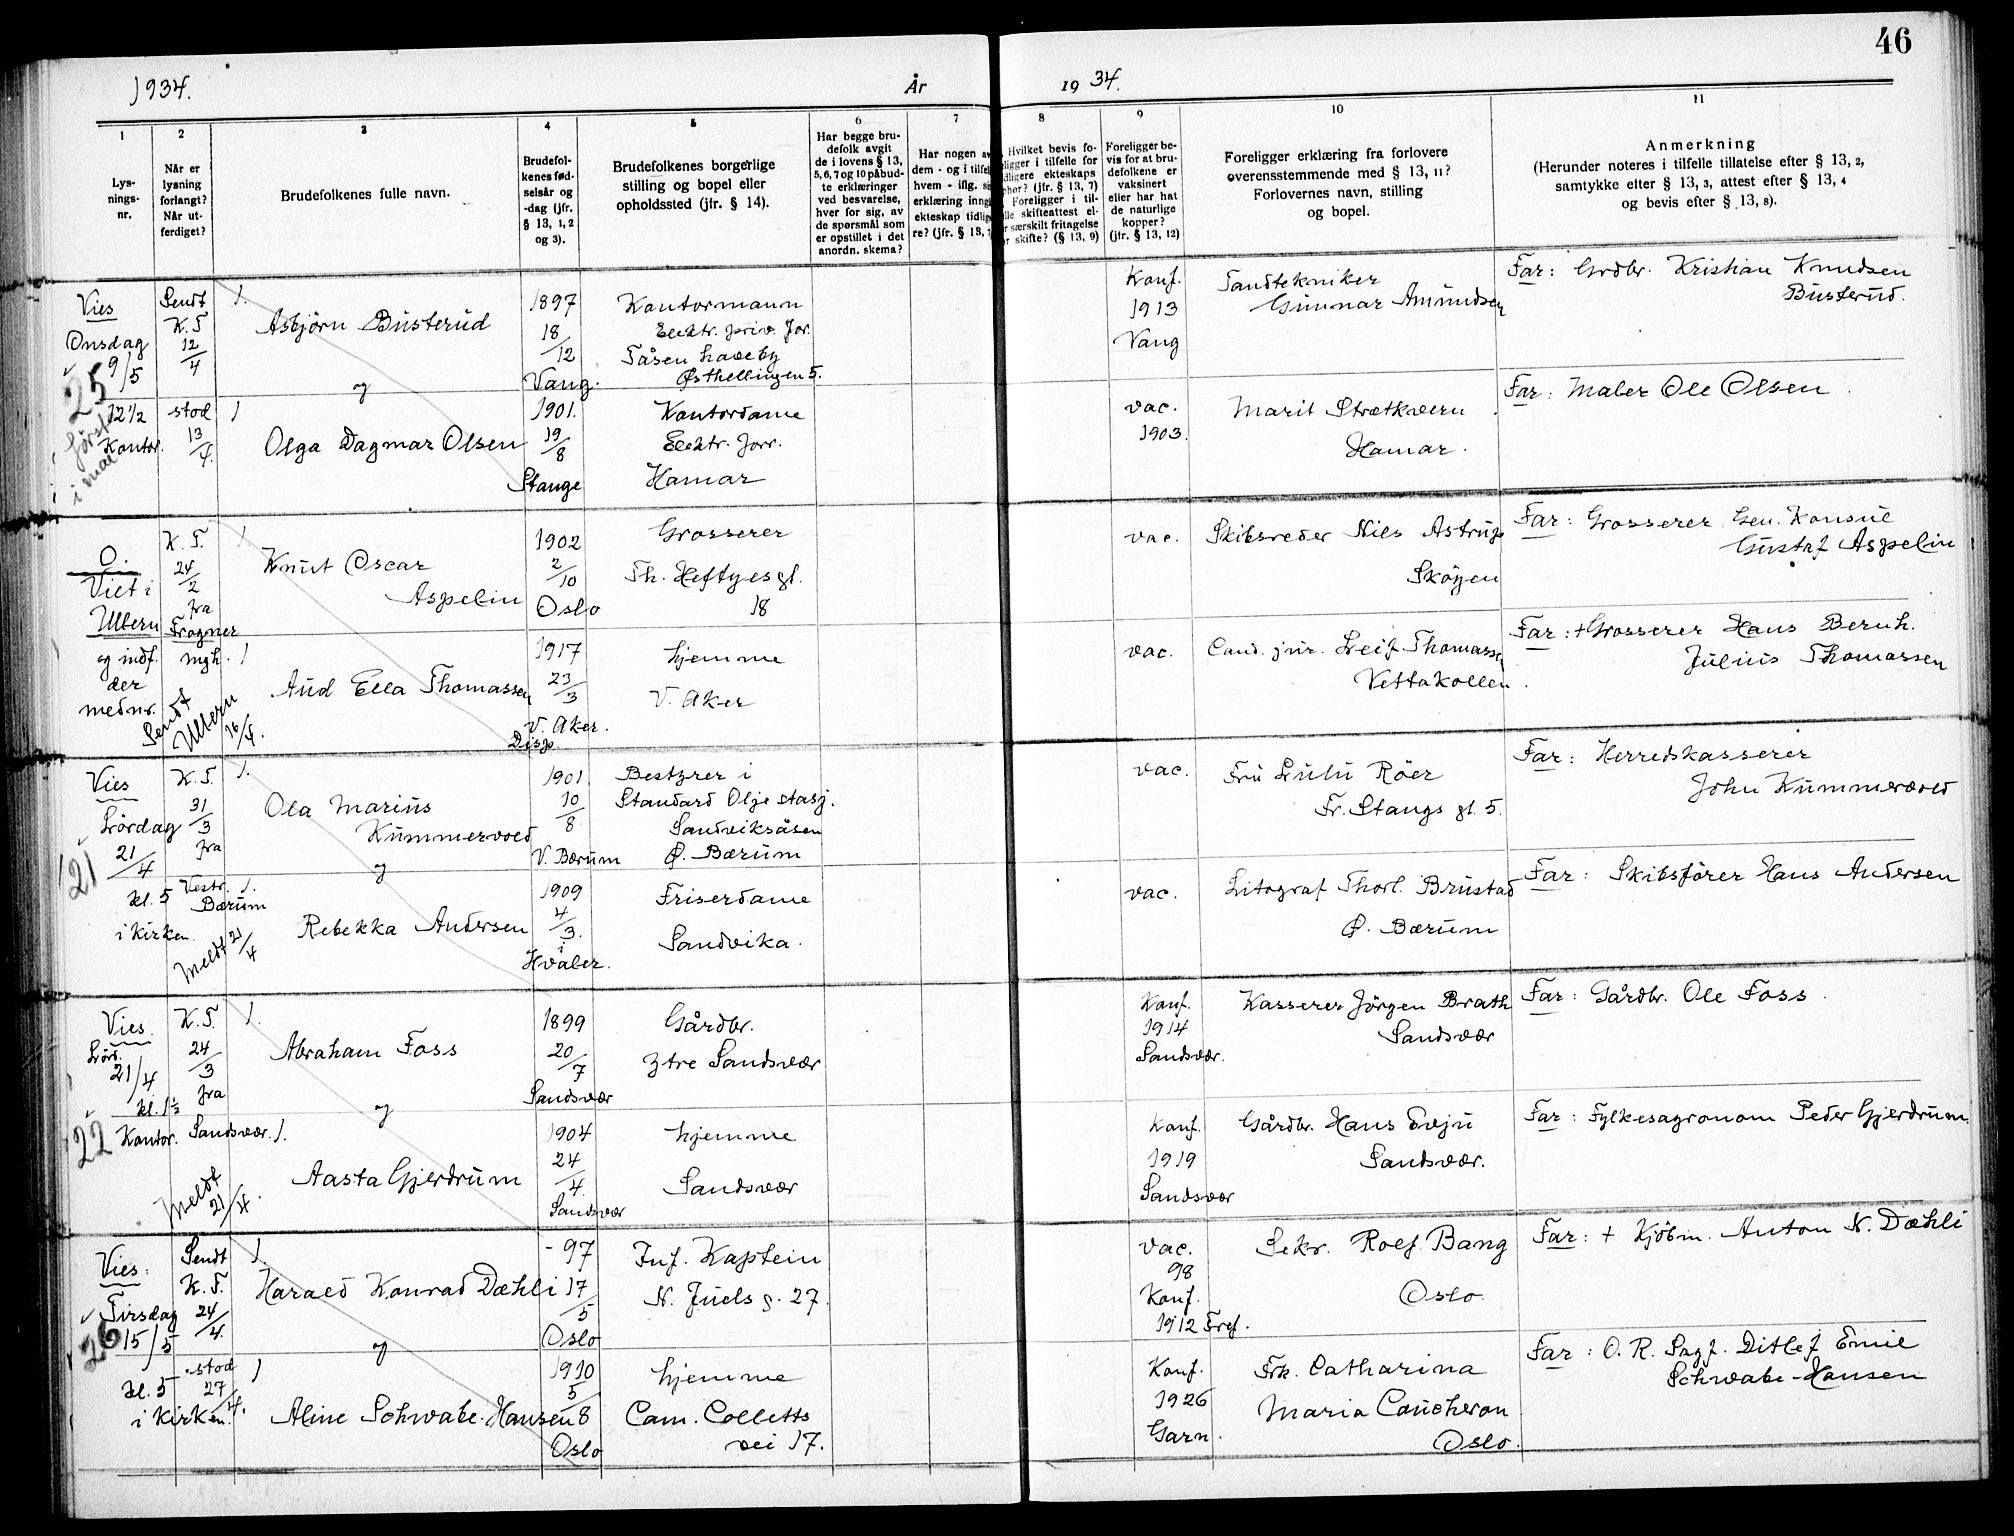 46
1934.
År
19 34.
1
2
3
4
5
6
7
8
9
10
11
Lys-
nings-
nr.
Når er
lysning
forlangt?
Når ut-
ferdiget?
Brudefolkenes fulle navn.
Brudefol-
kenes fød-
selsår og
-dag (jfr.
§ 13, 1, 2
og 3).
Brudefolkenes borgerlige
stilling og bopel eller
opholdssted (jfr. § 14).
Har begge bru-
defolk avgit
de i lovens § 13,
5, 6, 7 og 10 påbud-
te erklæringer
ved besvarelse,
hver for sig, av
de spørsmål som
er opstillet i det
anordn. skema?
Har nogen av
dem - og i tilfel
hvem - iflg. si
erklæring inngå
ekteskap tidlig
re? (jfr. § 13, 7
Hvilket bevis fo-
eligger i tilfelle for
idligere ekteskaps
phør? (jfr. § 13, 7)
Foreligger i til-
elle skifteattest el-
r særskilt fritagelse
or skifte? (§ 13, 9)
Foreligger be-
vis for at bru-
defolkene er
vaksinert
eller har hat
de naturlige
kopper?
(jfr. § 13, 12)
Foreligger erklæring fra forlovere
overensstemmende med § 13, 11?
Forlovernes navn, stilling
og bopel.
Anmerkning
(Herunder noteres i tilfelle tillatelse efter § 13, 2,
samtykke efter § 13, 3, attest efter § 13, 4
og bevis efter § 13, 8).
Vies
Onsdag
9/5
25
12 1/2
Kontor.
først
i mai
Sendt
K.T
12/4
stod
13/4.
1.
Asbjörn Busterud
og
1897
18/12
Vang.
Kontormann
Elektr. priv. for.
Tåsen haveby
Østhellingen 5.
Konf.
1913
Vang
Tandtekniker
Gunnar Amundsen
Far: Grdbr. Kristian Knudsen
Busterud.
1
Olga Dagmar Olsen
1901.
19/8
Stange
Kontordame
Elektr. forr.
Hamar
vac.
1903.
Marit Strætkvern
Hamar.
Far: Maler Ole Olsen.
O.
Viet i
Ullern
og indf.
der
mednr.
K.T.
24/2
fra
Frogner
mgh.
Sendt
Ullern
16/4.
1.
Knut Oscar
Aspelin
1902
2/10
Oslo
Grosserer
Th. Heftyesgt.
18
vac.
Skibsreder Nils Astrup
Sköyen
Far: Grosserer Gen. Konsul
Gustaf Aspelin
1
Aud Ella Thomassen
1917
23/3
V. Aker.
Disp.
hjemme
V. Aker
vac.
Cand. jur. Leif Thomassen
Vettakollen.
Far: + Grosserer Hans Bernh.
Julius Thomassen
Vies
Lördag
21/4
21
kl. 5
i kirken
K.T.
31/3
fra
Vestr.
Bærum
Meldt 21/4
1.
Ola Marius
Kummervold
og
1901
10/8
V. Bærum
Bestyrer i
Standard Olje stasj.
Sandviksåsen
Ø. Bærum
vac.
Fru Lulu Röer
Fr. Stangs gt. 5.
Far: Herredskasserer
John Kummervold
1.
Rebekka Andersen
1909
4/3.
i
Hvaler.
Friserdame
Sandvika.
vac.
Litograf Thorl. Brustad
Ø. Bærum
Far: Skibsförer Hans Andersen
Vies.
Lörd.
21/4
kl. 1 1/2
22
Kontor.
K.T.
24/3
fra
Sandsvær.
Meldt
21/4.
1.
Abraham Foss
og
1899
20/7
Sandsvær
Gårdbr.
ytre Sandsvær
Konf.
1914
Sandsvær.
Kasserer Jörgen Brath
Sandsvær
Far: Gårdbr. Ole Foss.
1.
Aasta Gjerdrum
1904
24/4.
Sandsvær
hjemme
Sandsvær
Konf.
1919
Sandsvær
Gårdbr. Hans Evju
Sandsvær.
Far: Fylkesagronom Peder Gjerdrum.
Vies:
Tirsdag
15/5
26
kl. 5
i Kirken.
Sendt
K.T.
24/4.
stod
27/4.
1.
Harald Konrad Dæhli
og
- 97
17/5
Oslo
Inf. Kaptein
N. Juels g. 27.
vac.
98
Konf.
1912 Fref.
Sekr. Rolf Bang
Oslo.
Far: + Kjöbm. Anton N. Dæhli
1
Aline Schwabe-Hansen
1910
5/8
Oslo
hjemme
Cam. Colletts
vei 17.
Konf.
1926
Garn.
Frk. Catharina
Maria Caucheron
Oslo.
Far: O. R. Sagf. Ditlef Emil
Schwabe-Hansen